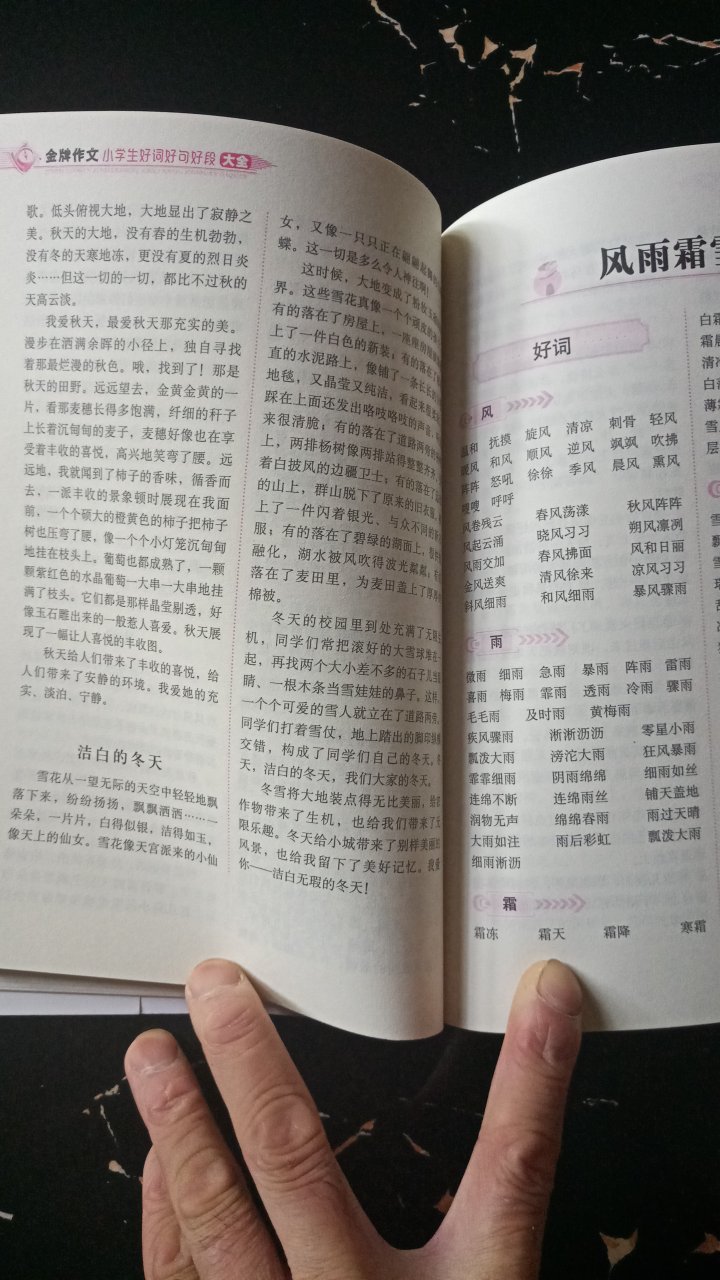 金牌作文小学生好词好句好段大全
歌。低头俯视大地，大地显出了寂静之
美。秋天的大地，没有春的生机勃勃，
没有冬的天寒地冻，更没有夏的烈日炎
炎……但这一切的一切，都比不过秋的
天高云淡。
我爱秋天，最爱秋天那充实的美。
漫步在洒满余晖的小径上，独自寻找
着那最烂漫的秋色。哦，找到了！那是
秋天的田野。远远望去，金黄金黄的一
片，看那麦穗长得多饱满，纤细的秆子
上长着沉甸甸的麦子，麦穗好像也在享
受着丰收的喜悦，高兴地笑弯了腰。远
远地，我就闻到了柿子的香味，循香而
去，一派丰收的景象顿时展现在我面
前，一个个硕大的橙黄色的柿子把柿子
树也压弯了腰，像一个个小灯笼沉甸甸
地挂在枝头上。葡萄也都成熟了，一颗
颗紫红色的水晶葡萄一大串一大串地挂
满了枝头。它们都是那样晶莹剔透，好
像玉石雕出来的一般惹人喜爱。秋天展
现了一幅让人喜悦的丰收图。
秋天给人们带来了丰收的喜悦，给
人们带来了安静的环境。我爱她的充
实、淡泊、宁静。
洁白的冬天
雪花从一望无际的天空中轻轻地飘
落下来，纷纷扬扬，飘飘洒洒……一
朵朵，一片片，白得似银，洁得如玉，
像天上的仙女。雪花像天宫派来的小仙
女，又像一只只正在翩翩起舞的
蝶。这一切是多么令人神往啊！
这时候，大地变成了粉妆玉
界。这些雪花真像一个个顽皮的
有的落在了房屋上，一座座房屋
上了一件白色的新装；有的落在了
直的水泥路上，像铺了一条长长的
地毯，又晶莹又纯洁，看起来
踩在上面还发出咯吱咯吱的声音，
来很清脆；有的落在了道路两旁的
上，两排杨树像两排站得整整齐齐、
着白披风的边疆卫士；有的落在了
的山上，群山脱下了原来的旧衣服，
上了一件闪着银光、与众不同的新
服；有的落在了碧绿的湖面上，
融化，湖水被风吹得波光粼粼；有
落在了麦田里，为麦田盖上了厚厚的
棉被。
冬天的校园里到处充满了无限
机，同学们常把滚好的大雪球堆在一
起，再找两个大小差不多的石子儿当
睛、一根木条当雪娃娃的鼻子。这样，
一个个可爱的雪人就立在了道路两旁。
同学们打着雪仗，地上踏出的脚印纵横
交错，构成了同学们自己的冬天。冬
天，洁白的冬天，我们大家的冬天。
冬雪将大地装点得无比美丽，给农
作物带来了生机，也给我们带来了无
限乐趣。冬天给小城带来了别样美丽的
风景，也给我留下了美好记忆。我爱
你——洁白无瑕的冬天！
风雨霜雪
好词
风
温和 抚摸 旋风 清凉 刺骨 轻风
暖风 和风 顺风 逆风 飒飒 吹拂
阵阵 怒吼 徐徐 季风 晨风 熏风
嗖嗖 呼呼
风卷残云 春风荡漾 秋风阵阵
风起云涌 晓风习习 朔风凛冽
风雨交加 春风拂面 风和日丽
金风送爽 清风徐来 凉风习习
斜风细雨 和风细雨 暴风骤雨
雨
微雨 细雨 急雨 暴雨 阵雨 雷雨
喜雨 梅雨 霏雨 透雨 冷雨 骤雨
毛毛雨 及时雨 黄梅雨
疾风骤雨 淅淅沥沥 零星小雨
瓢泼大雨 滂沱大雨 狂风暴雨
霏霏细雨 阴雨绵绵 细雨如丝
连绵不断 连绵雨丝 铺天盖地
润物无声 绵绵春雨 雨过天晴
大雨如注 雨后彩虹 瓢泼大雨
细雨淅沥
霜
霜冻 霜天 霜降 寒霜
白霜